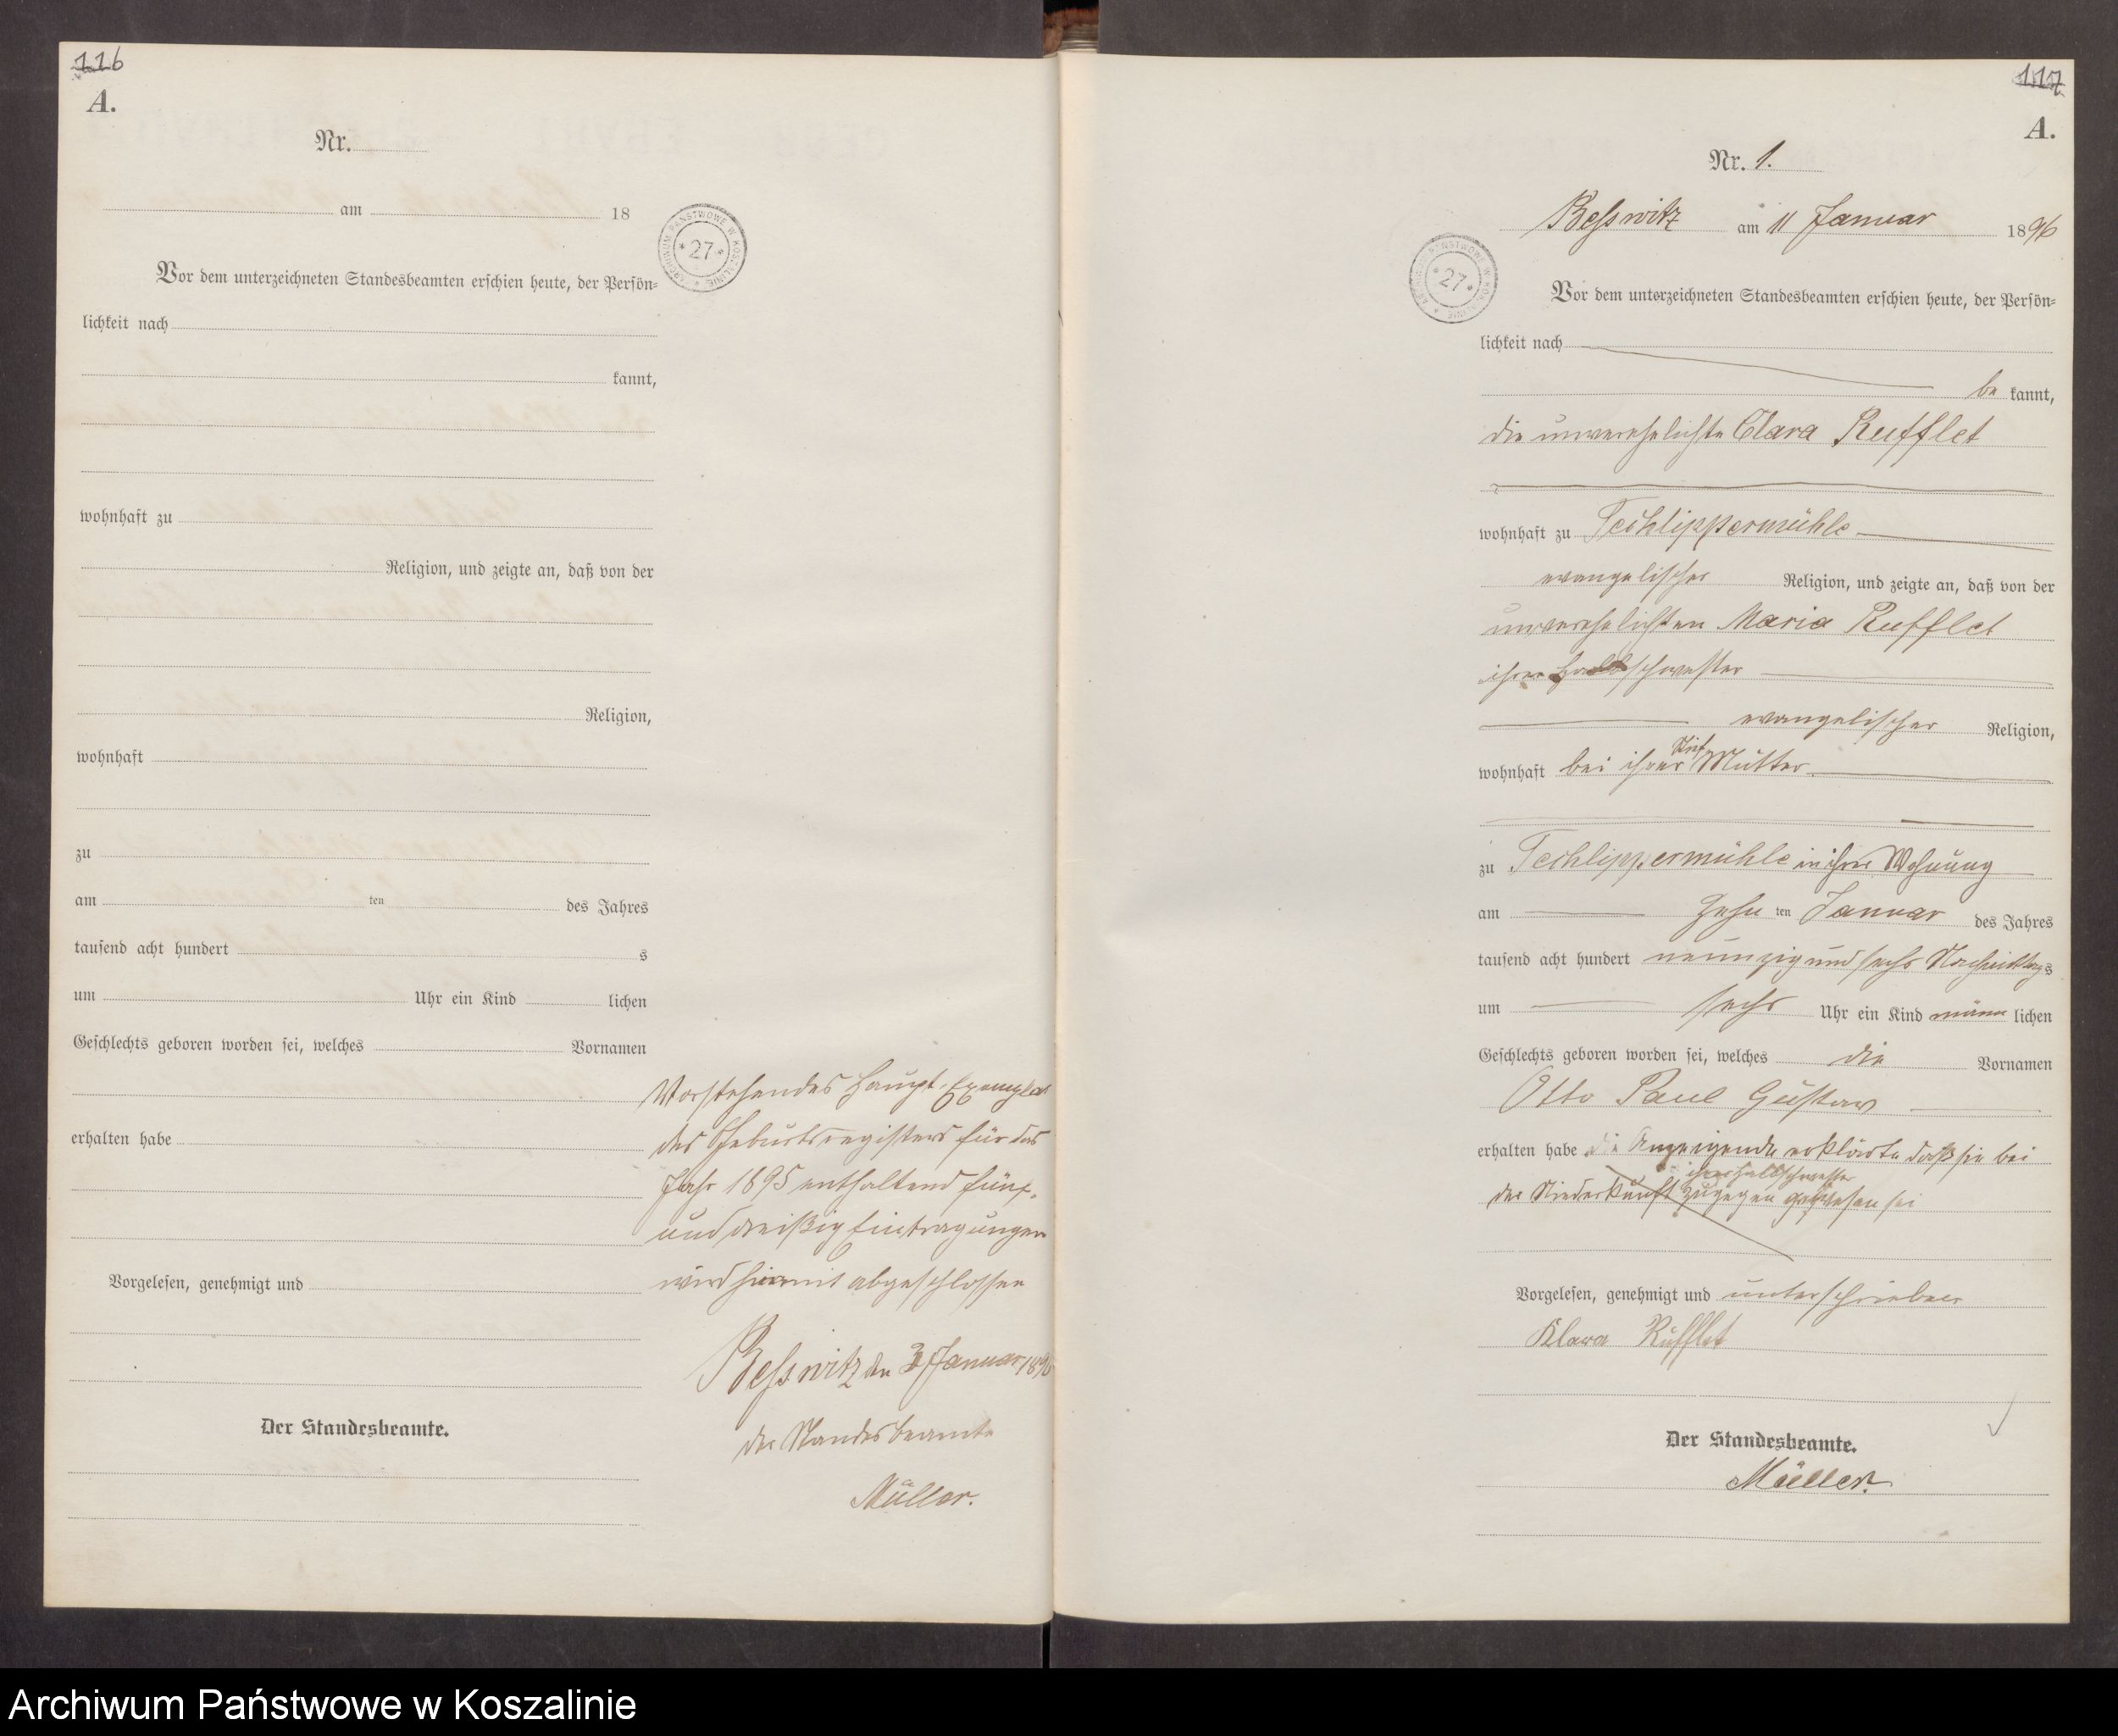 116
A.
Nr.
am 18
Vor dem unterzeichneten Standesbeamten erschien heute, der Persön-
lichkeit nach
kannt,
wohnhaft zu
Religion, und zeigte an, daß von der
Religion,
wohnhaft
zu
am ten des Jahres
tausend acht hundert s
um Uhr ein Kind lichen
Geschlechts geboren worden sei, welches Vornamen
erhalten habe
Vorgelesen, genehmigt und
Der Standesbeamte.
ARCHIWUM PAŃSTWOWE W KOSZALINIE
* 27 *
Vorstehendes Haupt-Exemplar
des Geburtsregisters für das
Jahr 1895 enthaltend fünf-
und dreißig Eintragungen
wird hiermit abgeschlossen
Besswitz den 3 Januar 1896
der Standesbeamte
Müller.
117
A.
Nr. 1.
Besswitz am 11 Januar 1896
ARCHIWUM PAŃSTWOWE W KOSZALINIE
* 27 *
Vor dem unterzeichneten Standesbeamten erschien heute, der Persön-
lichkeit nach
be kannt,
die unverehelichte Clara Rufflet
wohnhaft zu Techlippermühle
evangelischer Religion, und zeigte an, daß von der
unverehelichten Maria Rufflet
ihrer Halbschwester
evangelischer Religion,
wohnhaft bei ihrer Stief Mutter
zu Techlippermühle in ihrer Wohnung
am zehn ten Januar des Jahres
tausend acht hundert neunzig und sechs Nachmittags
um sechs Uhr ein Kind männ lichen
Geschlechts geboren worden sei, welches die Vornamen
Otto Paul Gustav
erhalten habe die Anzeigende erklärte daß sie bei
der Niederkunft ihrer Halbschwester zugegen gewesen sei
Vorgelesen, genehmigt und unterschrieben
Klara Rufflet
Der Standesbeamte.
Müller.
Archiwum Państwowe w Koszalinie